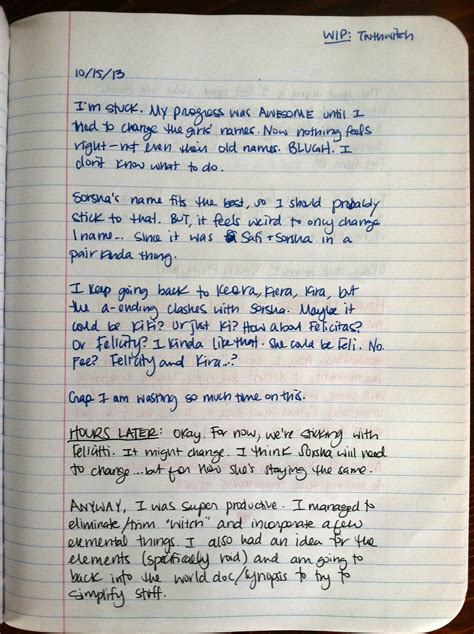 WIP: Truthwitch
10/15/13
I'm stuck. My progress was AWESOME until I
had to change the girls' names. Now nothing feels
right—not even their old names. BLUGH. I
don't know what to do.
Sorsha's name fits the best, so I should probably
stick to that. BUT, it feels weird to only change
1 name... since it was Safi + Sorsha in a
pair kinda thing.
I keep going back to Keera, Kiera, Kira, but
the a-ending clashes with Sorsha. Maybe it
could be Kiki? Or just Ki? How about Felicitas?
Or Felicity? I kinda like that. She could be Feli. No.
Fee? Felicity and Kira...?
Gap. I am wasting so much time on this.
HOURS LATER: Okay. For now, we're sticking with
Felicitti. It might change. I think Sorsha will need
to change...but for now she's staying the same.
ANYWAY, I was super productive. I managed to
eliminate/trim "witch" and incorporate a few
elemental things. I also had an idea for the
elements (specifically void) and am going to
back into the world doc/synopsis to try to
simplify stuff.